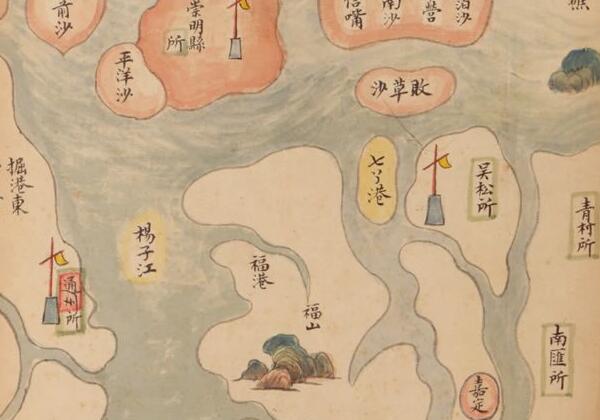 前沙
崇明縣
所
南沙
營
平洋沙
敗草沙
七丫港
吴松所
青村所
掘港東
楊子江
福港
福山
通州所
南匯所
嘉定